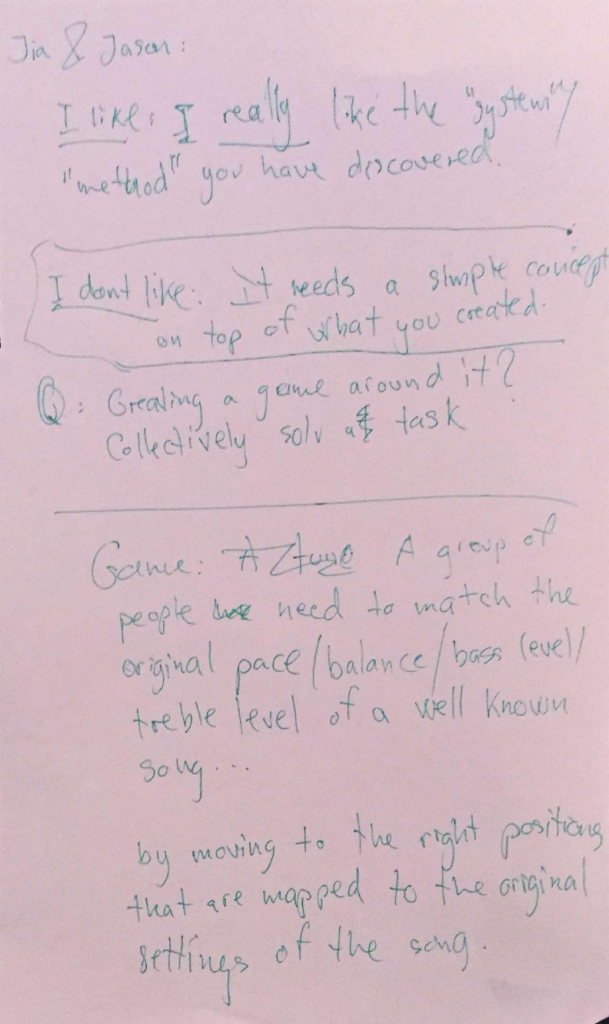 Jia & Jason:
I like: I really like the "system"/
"method" you have discovered.
I dont like: It needs a simple concept
on top of what you created.
Q: Creating a game around it?
Collectively solv a task
Game: A group of
people need to match the
original pace/balance/bass level/
treble level of a well known
song...
by moving to the right positions
that are mapped to the original
settings of the song.